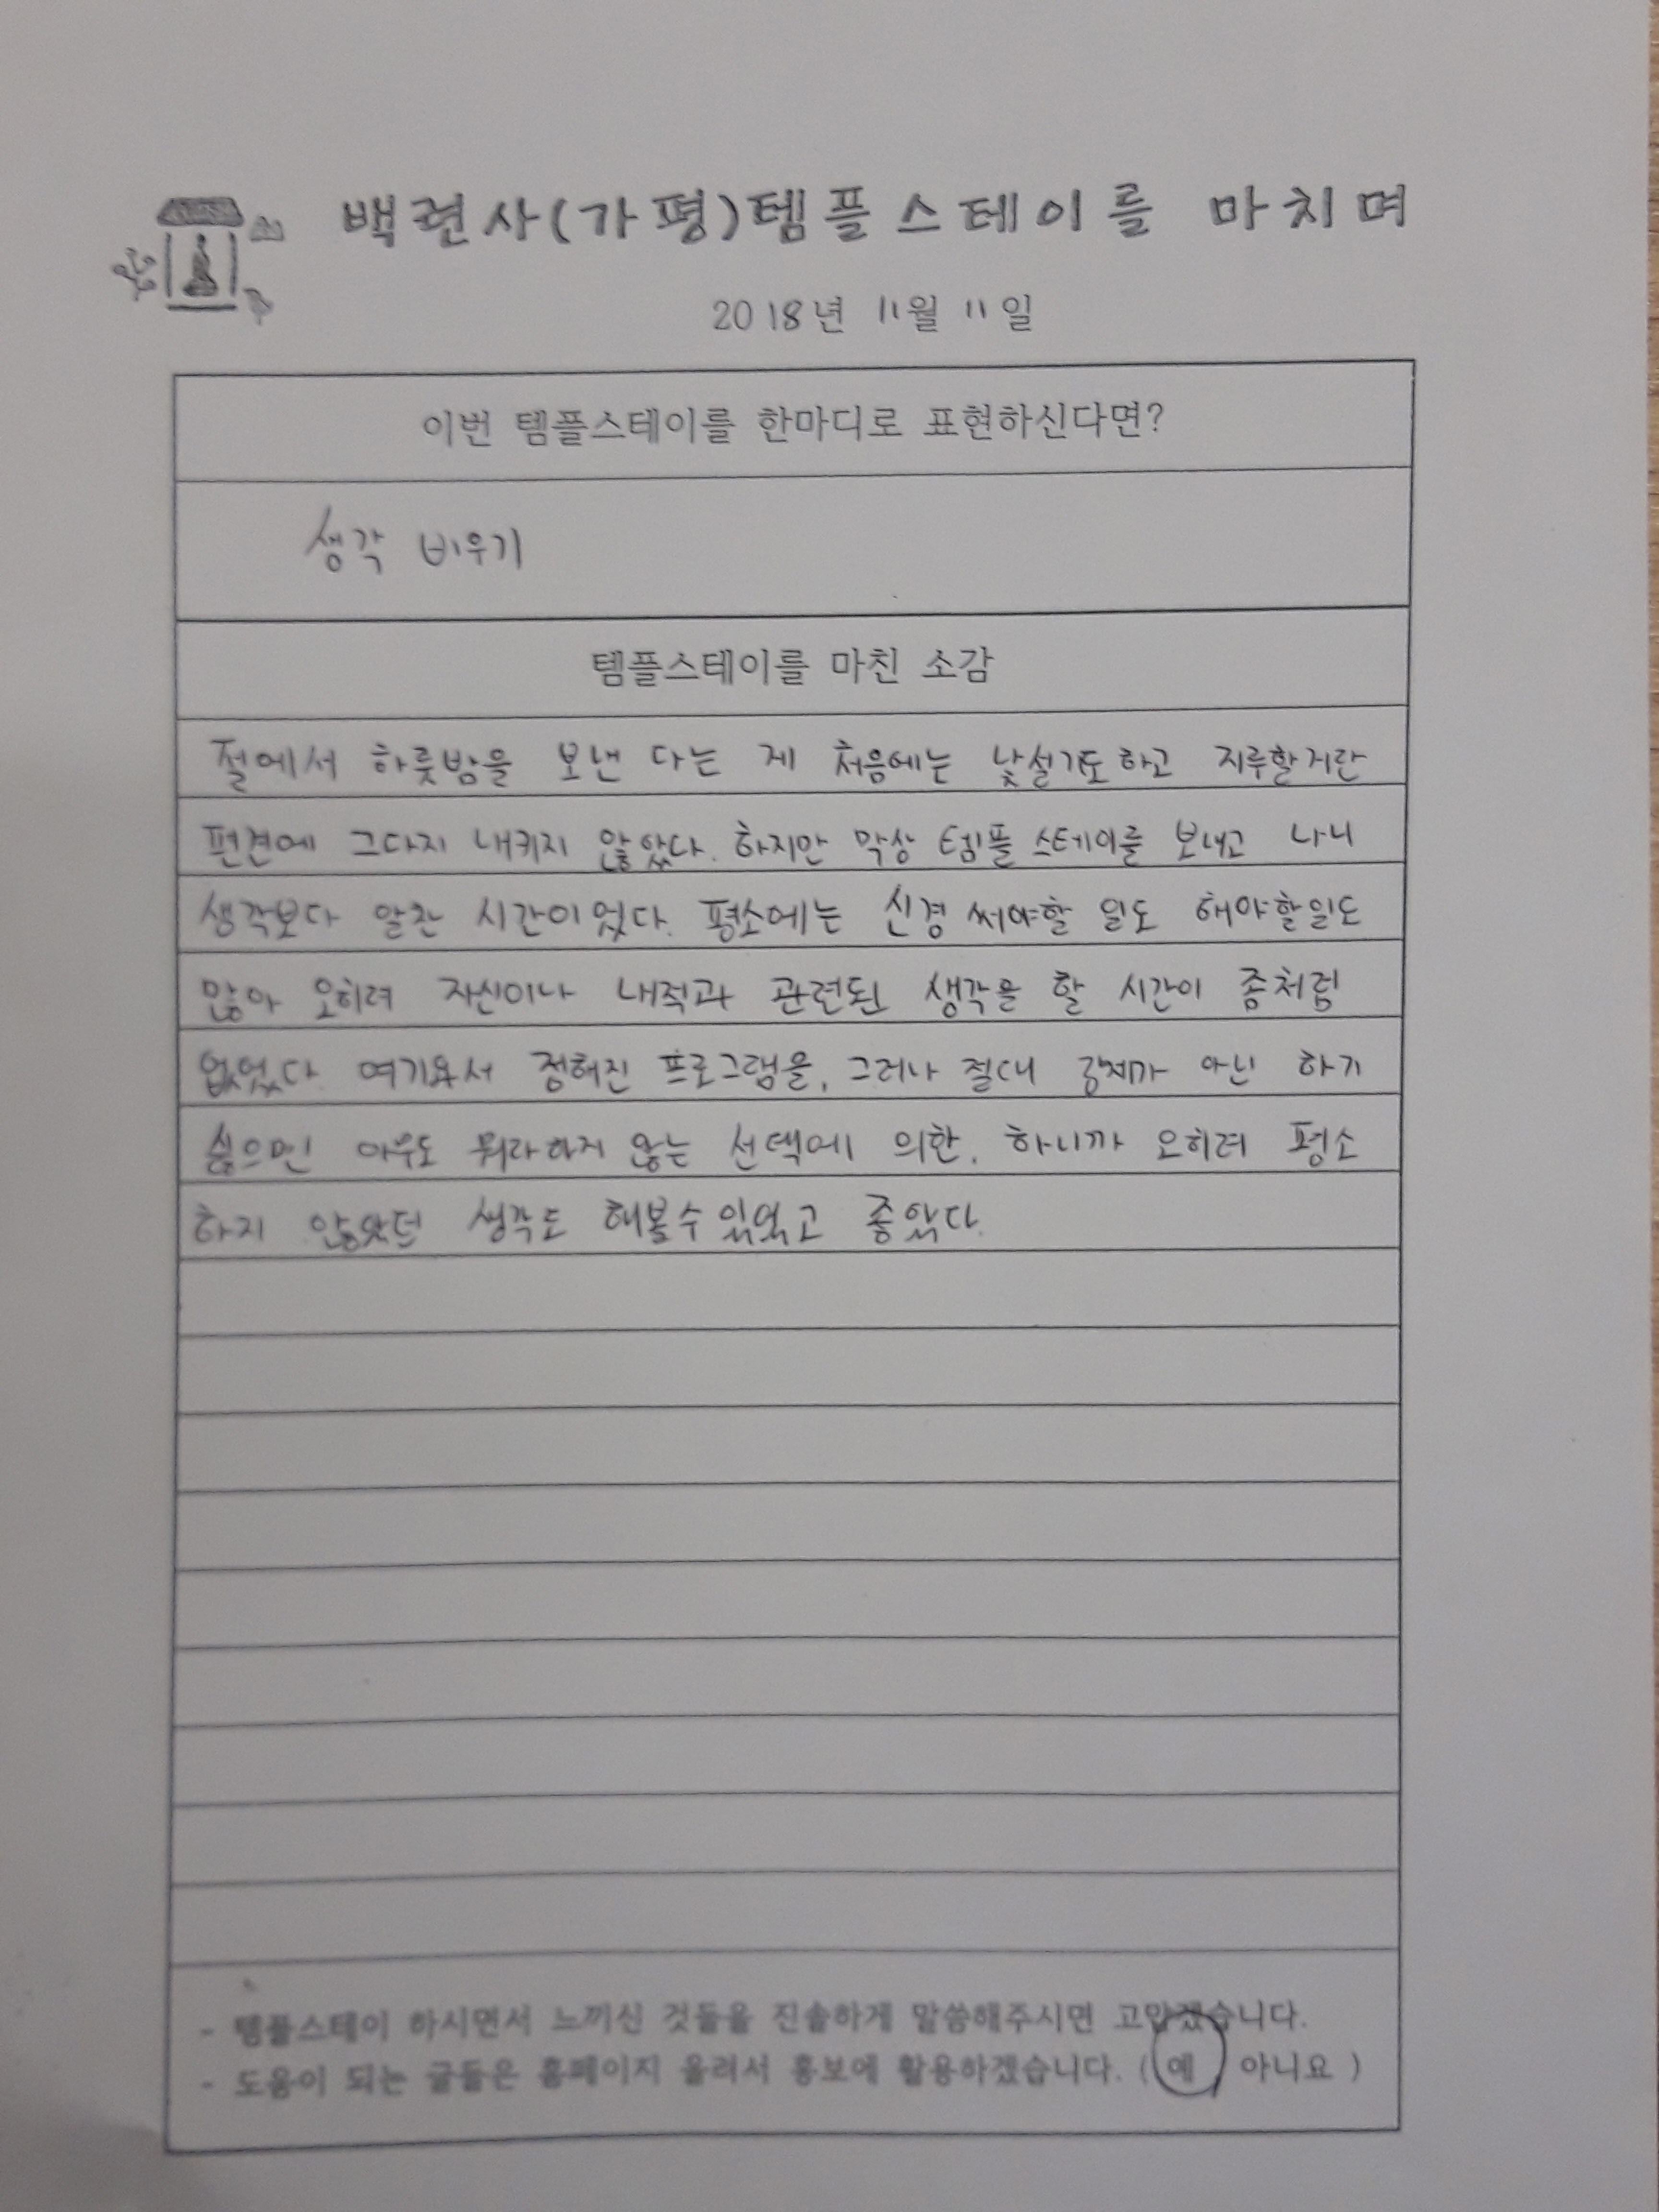 백련사(가평)템플스테이를 마치며
2018년 11월 11일
이번 템플스테이를 한마디로 표현하신다면?
생각 비우기
템플스테이를 마친 소감
절에서 하룻밤을 보낸 다는 게 처음에는 낯설기도하고 지루할거란
편견에 그다지 내키지 않았다. 하지만 막상 템플 스테이를 보내고 나니
생각보다 알찬 시간이었다. 평소에는 신경 써야할 일도 해야할일도
많아 오히려 자신이나 내적과 관련된 생각을 할 시간이 좀처럼
없었다. 여기와서 정해진 프로그램을, 그러나 절대 강제가 아닌 하기
싫으면 아무도 뭐라하지 않는 선택에 의한, 하니까 오히려 평소
하지 않았던 생각도 해볼수있었고 좋았다.
- 템플스테이 하시면서 느끼신 것들을 진솔하게 말씀해주시면 고맙겠습니다.
- 도움이 되는 글들은 홈페이지 올려서 홍보에 활용하겠습니다. ( 예 / 아니요 )